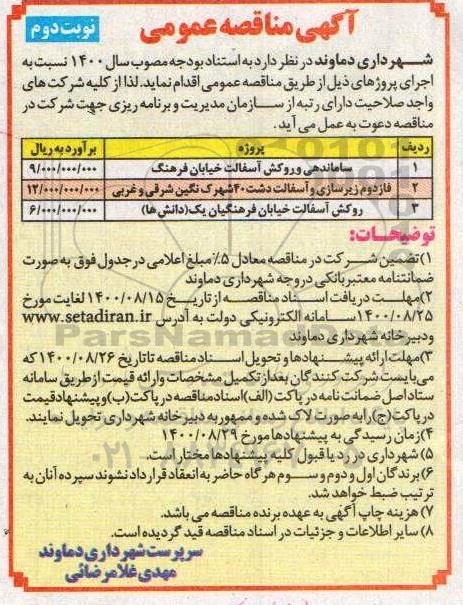 آگهی مناقصه عمومی
نوبت دوم
شهرداری دماوند در نظر دارد به استناد بودجه مصوب سال ۱۴۰۰ نسبت به
اجرای پروژهای ذیل از طریق مناقصه عمومی اقدام نماید. لذا از کلیه شرکت های
واجد صلاحیت دارای رتبه از سازمان مدیریت و برنامه ریزی جهت شرکت در
مناقصه دعوت به عمل می آید.
ردیف پروژه برآورد به ریال
۱ ساماندهی و روکش آسفالت خیابان فرهنگ ۹/۰۰۰/۰۰۰/۰۰۰
۲ فاز دوم زیرسازی و آسفالت دشت ۴۰ شهرک نگین شرقی و غربی ۱۲/۰۰۰/۰۰۰/۰۰۰
۳ روکش آسفالت خیابان فرهنگیان یک (دانش ها) ۶/۰۰۰/۰۰۰/۰۰۰
توضیحات:
۱) تضمین شرکت در مناقصه معادل ۵٪ مبلغ اعلامی در جدول فوق به صورت
ضمانتنامه معتبر بانکی در وجه شهرداری دماوند
۲) مهلت دریافت اسناد مناقصه از تاریخ ۱۴۰۰/۰۸/۱۵ لغایت مورخ
۱۴۰۰/۰۸/۲۵ سامانه الکترونیکی دولت به آدرس www.setadiran.ir
و دبیرخانه شهرداری دماوند
۳) مهلت ارائه پیشنهادها و تحویل اسناد مناقصه تا تاریخ ۱۴۰۰/۰۸/۲۶ که
می بایست شرکت کنندگان بعد از تکمیل مشخصات و ارائه قیمت از طریق سامانه
ستاد اصل ضمانت نامه در پاکت (الف) اسناد مناقصه در پاکت (ب) و پیشنهاد قیمت
در پاکت (ج) را به صورت لاک شده و ممهور به دبیرخانه شهرداری تحویل نمایند.
۴) زمان رسیدگی به پیشنهادها مورخ ۱۴۰۰/۰۸/۲۹
۵) شهرداری در رد یا قبول کلیه پیشنهادها مختار است.
۶) برندگان اول و دوم و سوم هرگاه حاضر به انعقاد قرارداد نشوند سپرده آنان به
ترتیب ضبط خواهد شد.
۷) هزینه چاپ آگهی به عهده برنده مناقصه می باشد.
۸) سایر اطلاعات و جزئیات در اسناد مناقصه قید گردیده است.
سرپرست شهرداری دماوند
مهدی غلامرضائی